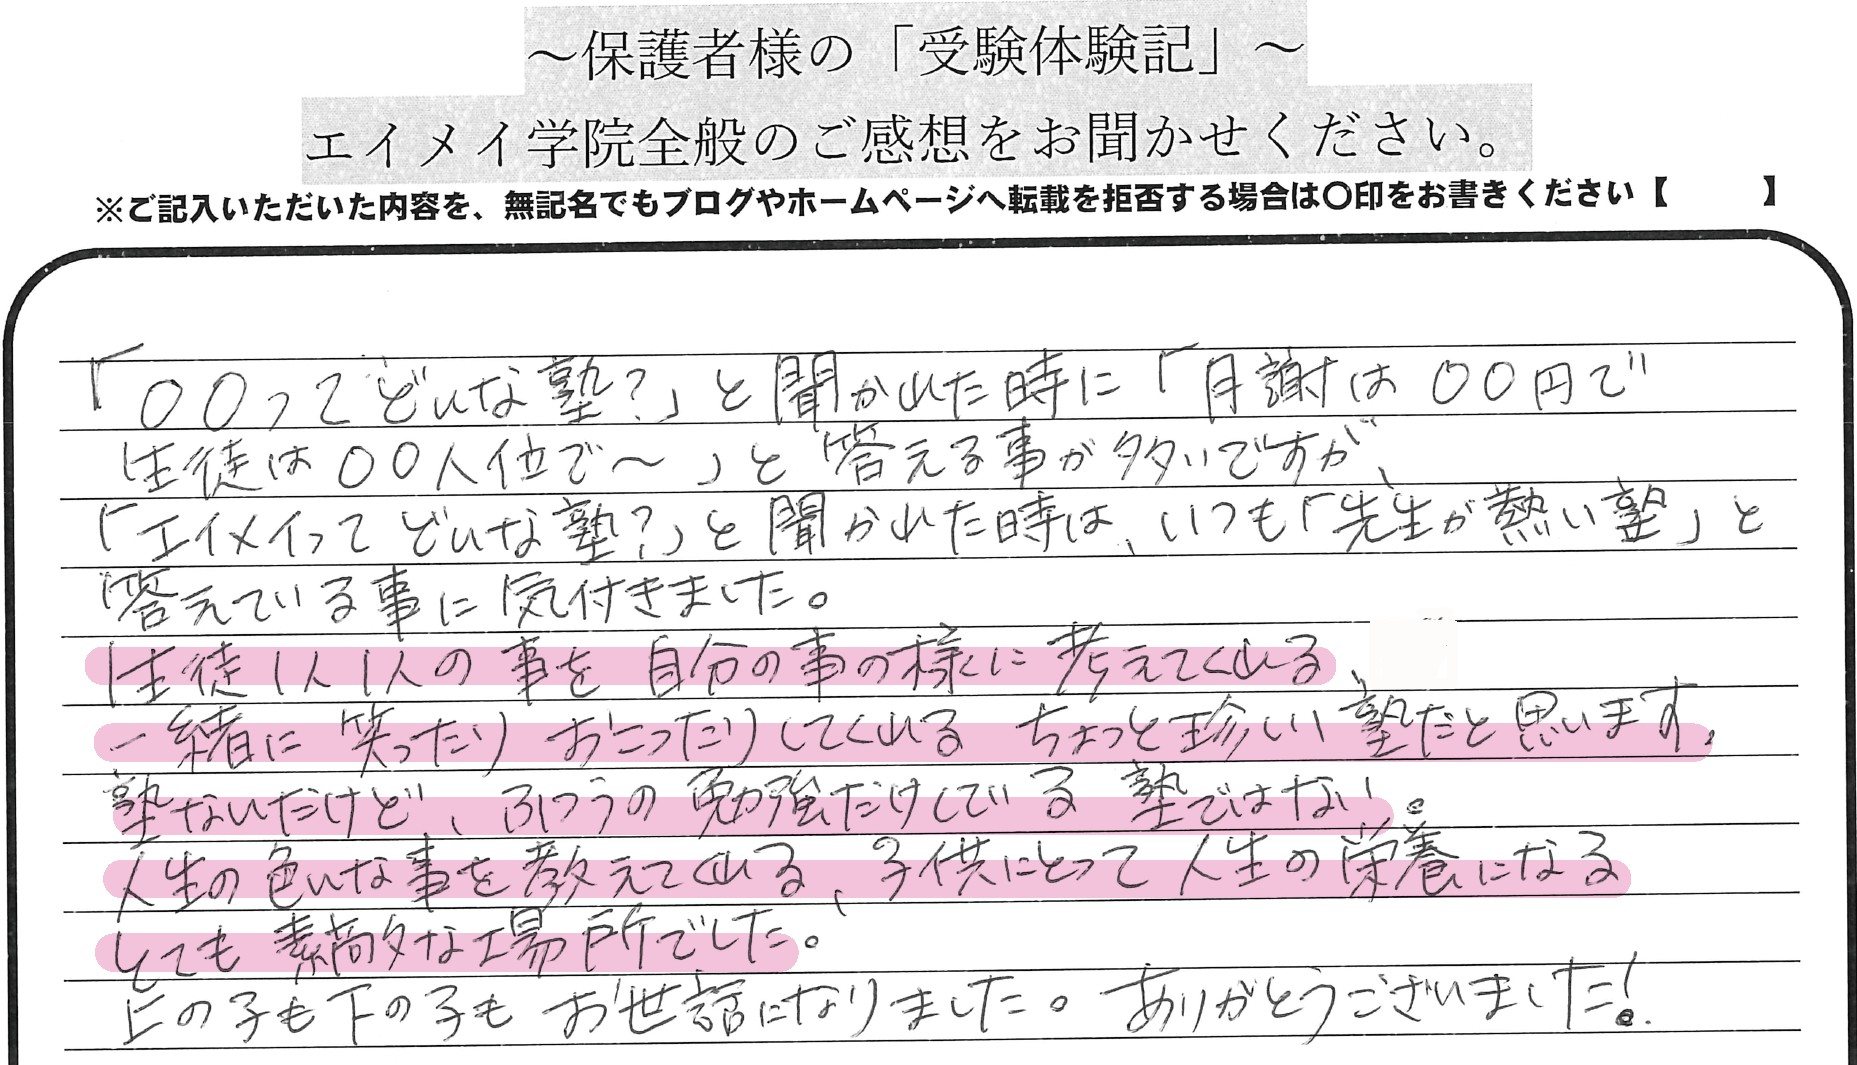 ～保護者様の「受験体験記」～
エイメイ学院全般のご感想をお聞かせください。
※ご記入いただいた内容を、無記名でもブログやホームページへ転載を拒否する場合は〇印をお書きください【　　】
「〇〇ってどんな塾？」と聞かれた時に「月謝は〇〇円で
生徒は〇〇人位で～」と答える事が多いですが、
「エイメイってどんな塾？」と聞かれた時は、いつも「先生が熱い塾」と
答えている事に気付きました。
生徒1人1人の事を自分の事の様に考えてくれる、
一緒に笑ったりおこったりしてくれるちょっと珍しい塾だと思います。
塾ないだけど、ふつうの勉強だけしている塾ではない。
人生の色いな事を教えてくれる、子供にとって人生の栄養になる
とても素敵な場所でした。
上の子も下の子もお世話になりました。ありがとうございました！